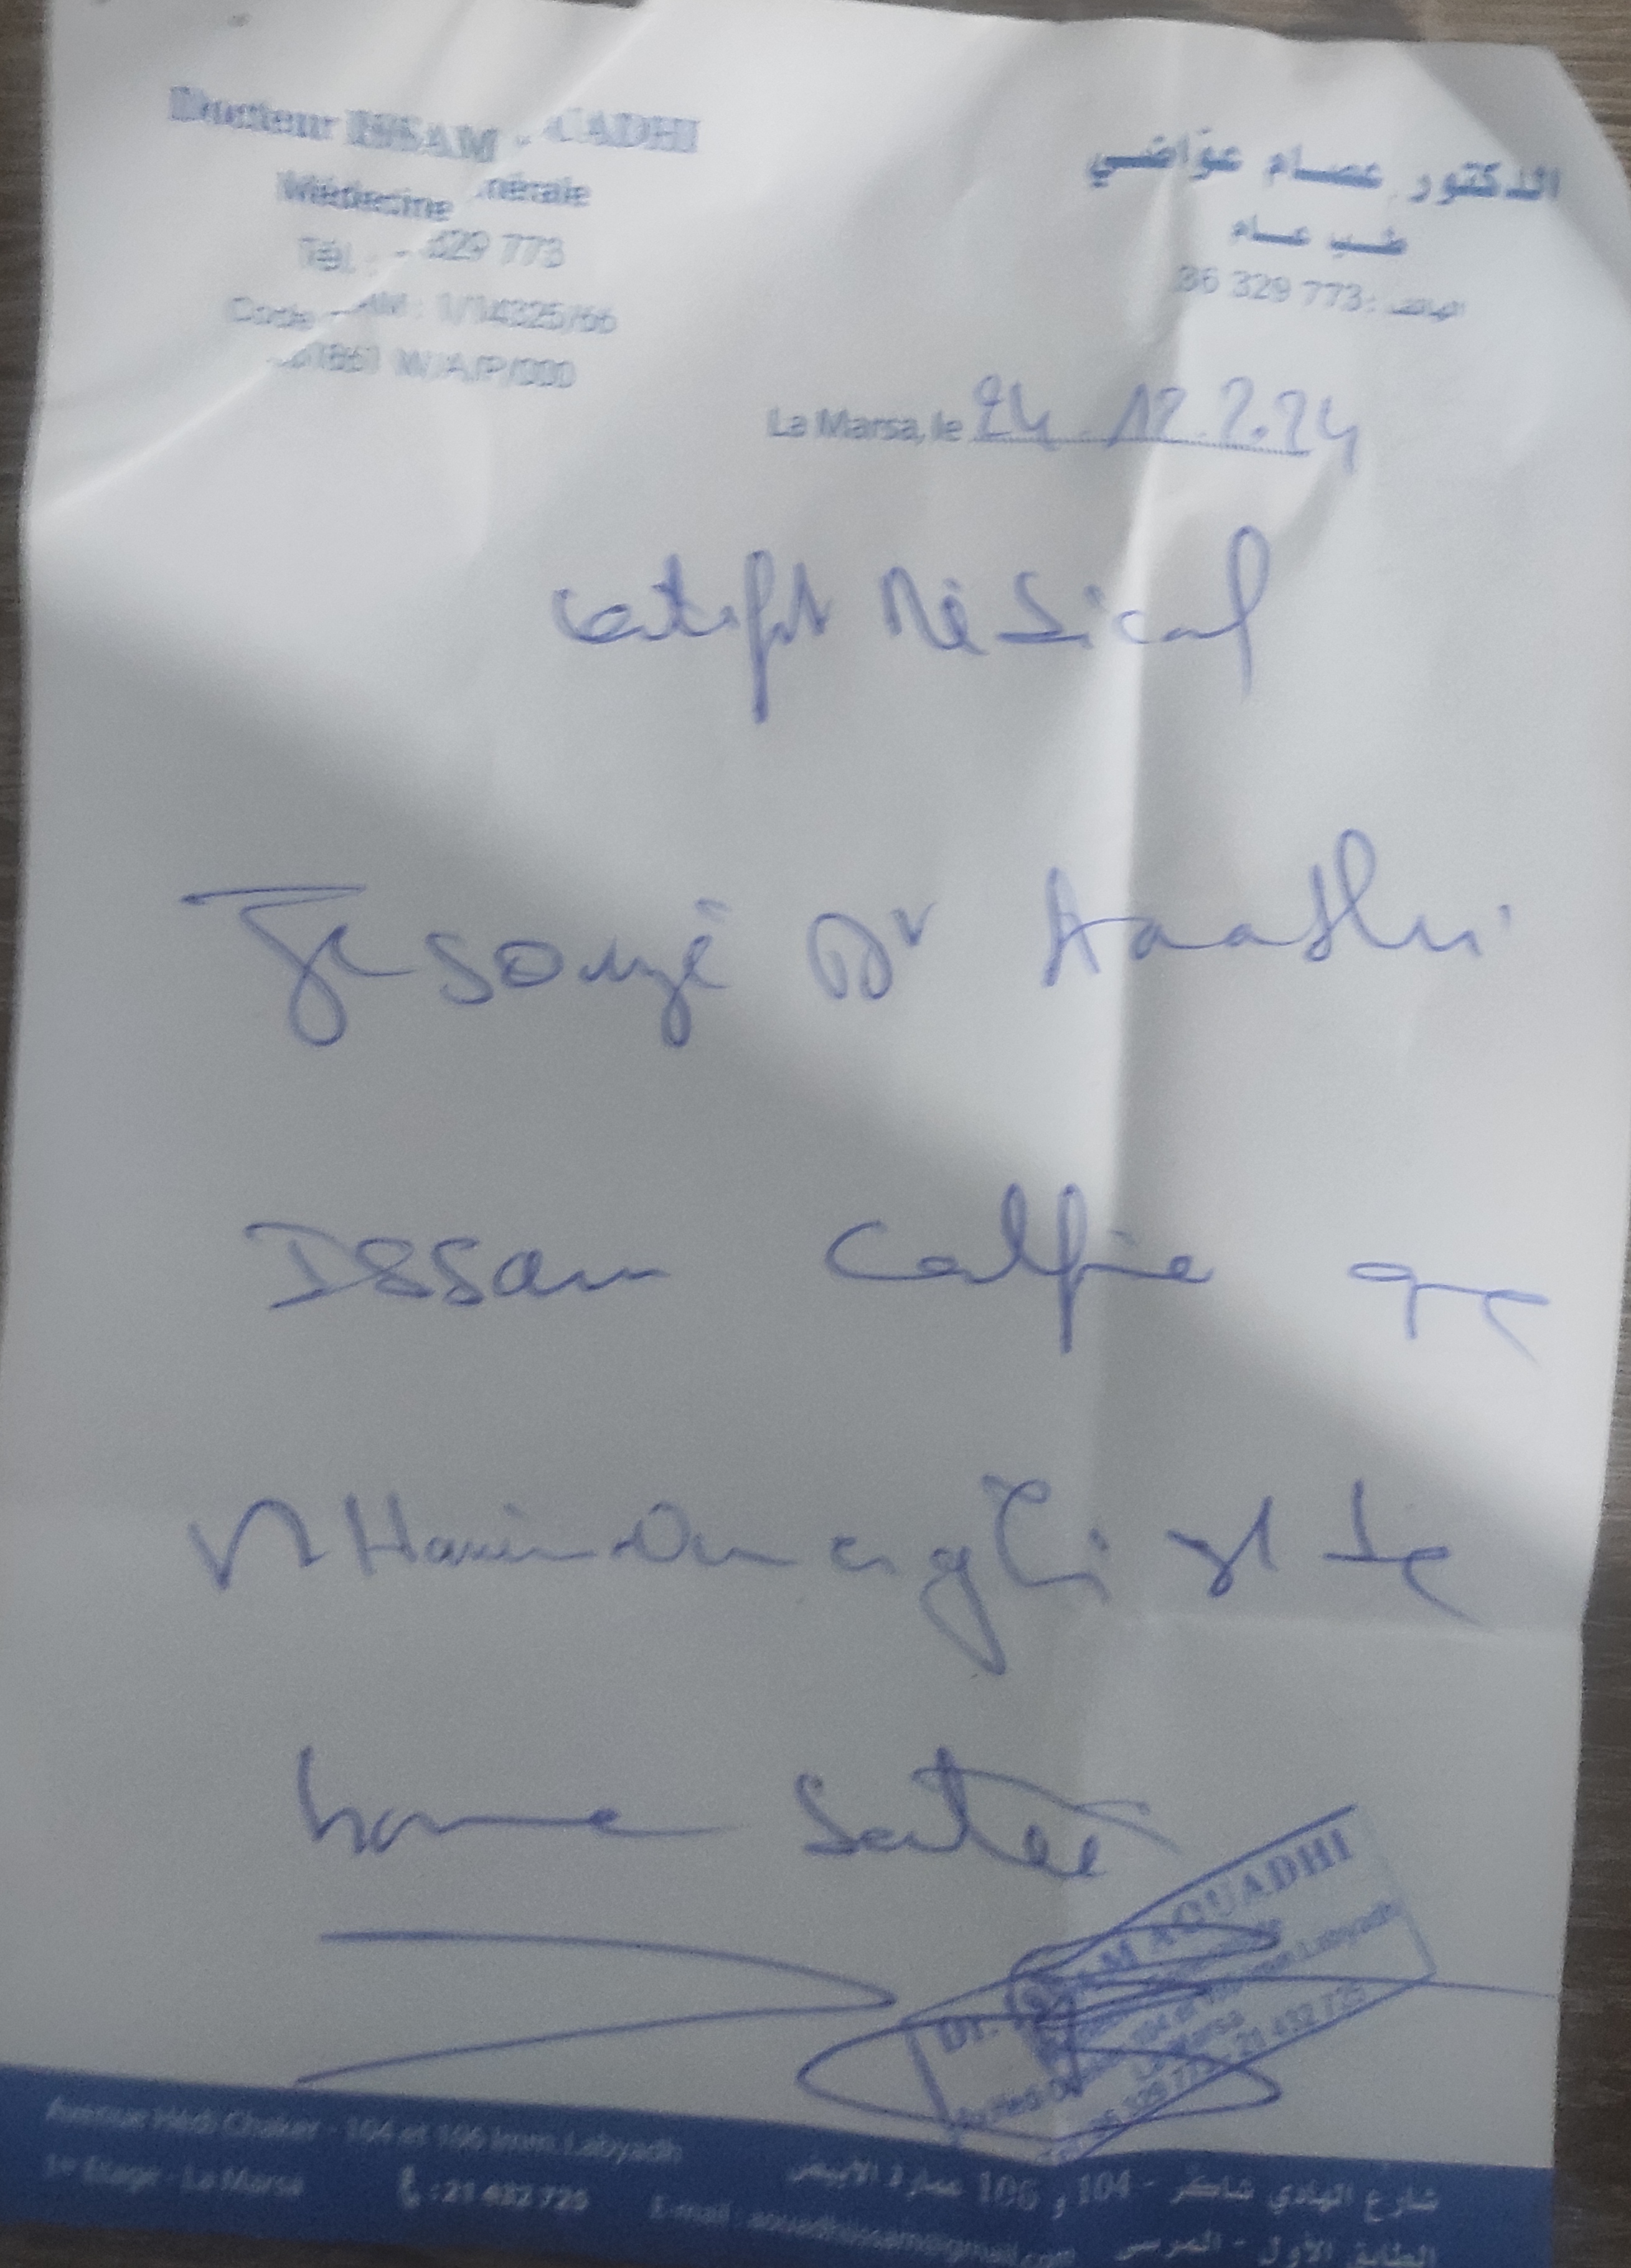 Docteur ISSAM AOUADHI
Médecine Générale
Tél. : 329 773
Code : 1/14325/66
La Marsa, le 24 12 2024
الدكتور عصام عوّاضي
طب عام
الهاتف : 36 329 773
Certifit Médical
Je sousigé Dr Aouadhi
Issam Certifie que
Mr est de
bonne Santé
Dr. ISSAM AOUADHI
La Marsa
36 329 773 - 21 432 725
Avenue Hédi Chaker - 104 et 106 Imm. Labyadh
1er Etage - La Marsa : 21 432 725 E-mail : aouadhiissam@gmail.com
شارع الهادي شاكر - 104 و 106 عمارة الأبيض
الطابق الأول - المرسى